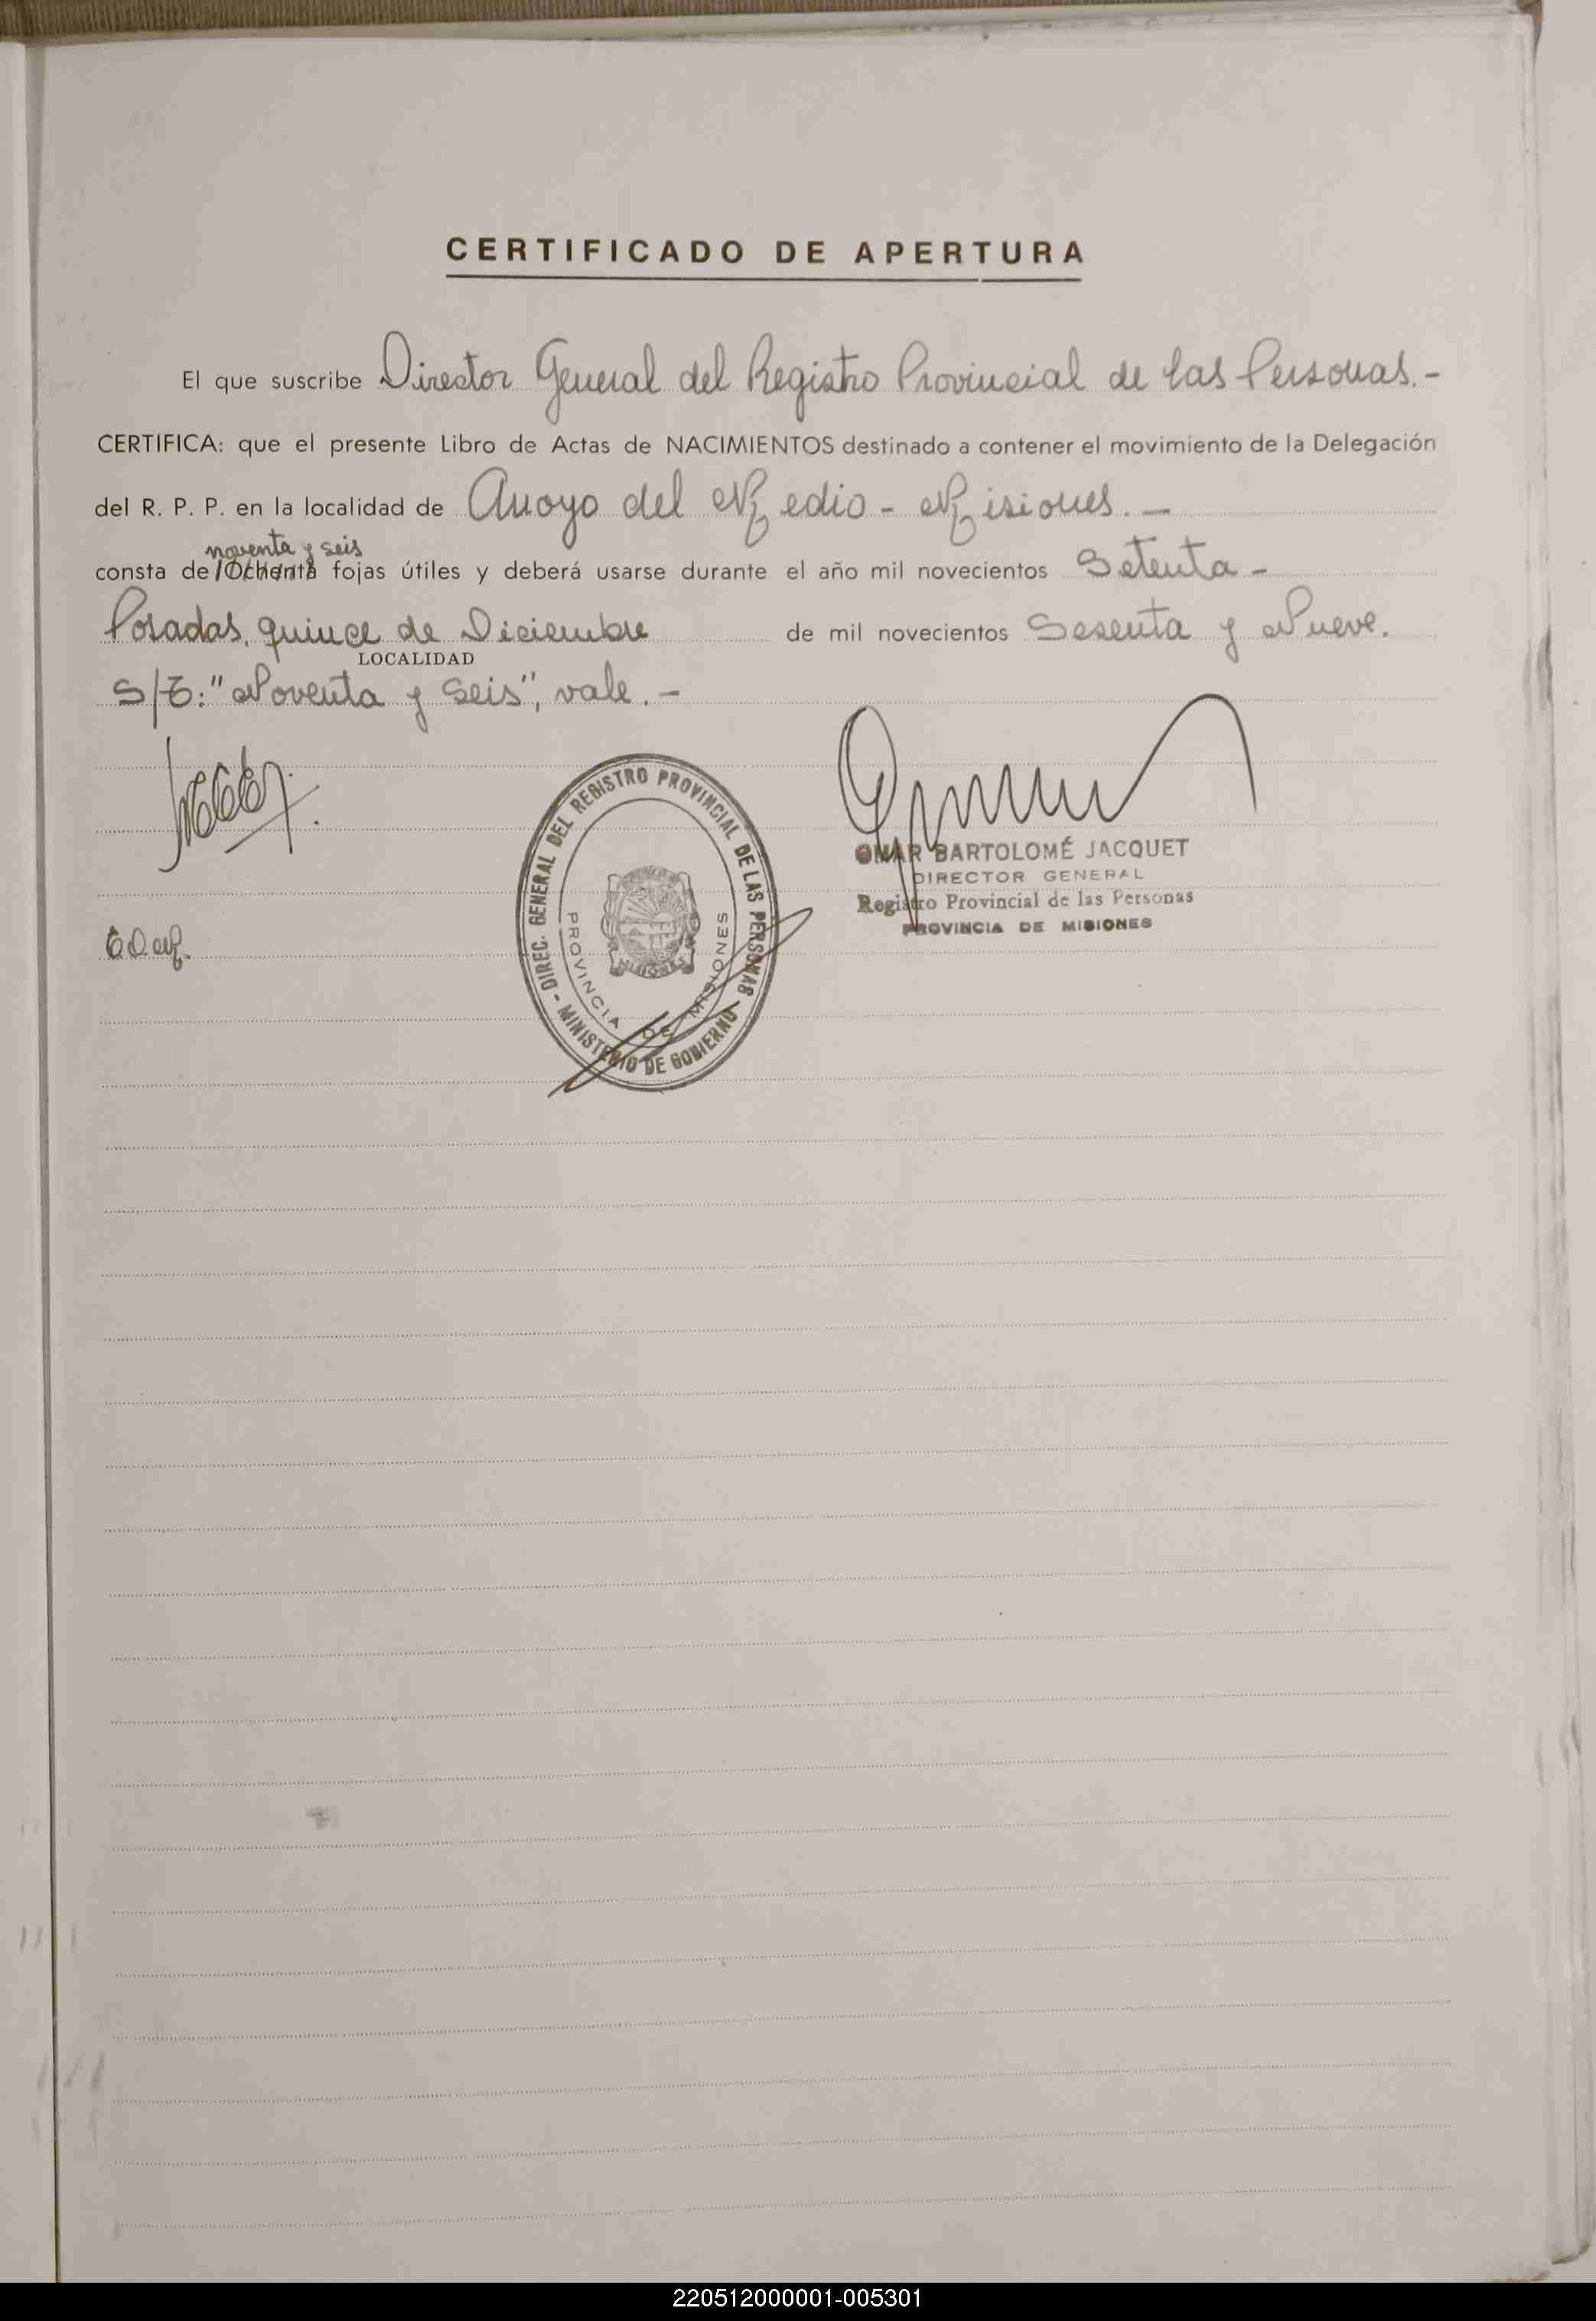 CERTIFICADO DE APERTURA
El que suscribe Director General del Registro Provincial de las Personas.-
CERTIFICA: que el presente Libro de Actas de NACIMIENTOS destinado a contener el movimiento de la Delegación
del R. P. P. en la localidad de Arroyo del Medio - Misiones. -
noventa y seis
consta de Ochenta fojas útiles y deberá usarse durante el año mil novecientos Setenta -
Posadas, quince de Diciembre de mil novecientos Sesenta y Nueve.
LOCALIDAD
S/E: "Noventa y Seis", vale. -
DIREC. GENERAL DEL REGISTRO PROVINCIAL DE LAS PERSONAS - MINISTERIO DE GOBIERNO -
PROVINCIA DE MISIONES
MISIONES
OMAR BARTOLOMÉ JACQUET
DIRECTOR GENERAL
Registro Provincial de las Personas
PROVINCIA DE MISIONES
220512000001-005301